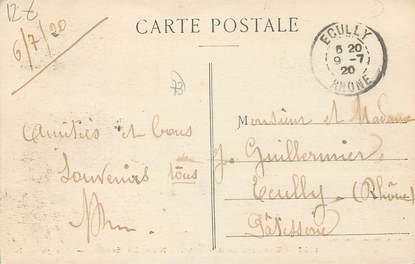 12€
6/7/20
CARTE POSTALE
ECULLY
5 20
9 -7
20
RHONE
73
Amitiés et bons
Souvenirs de tous
Monsieur et Madame
J. Guillermier
Ecully (Rhône)
Pâtissier